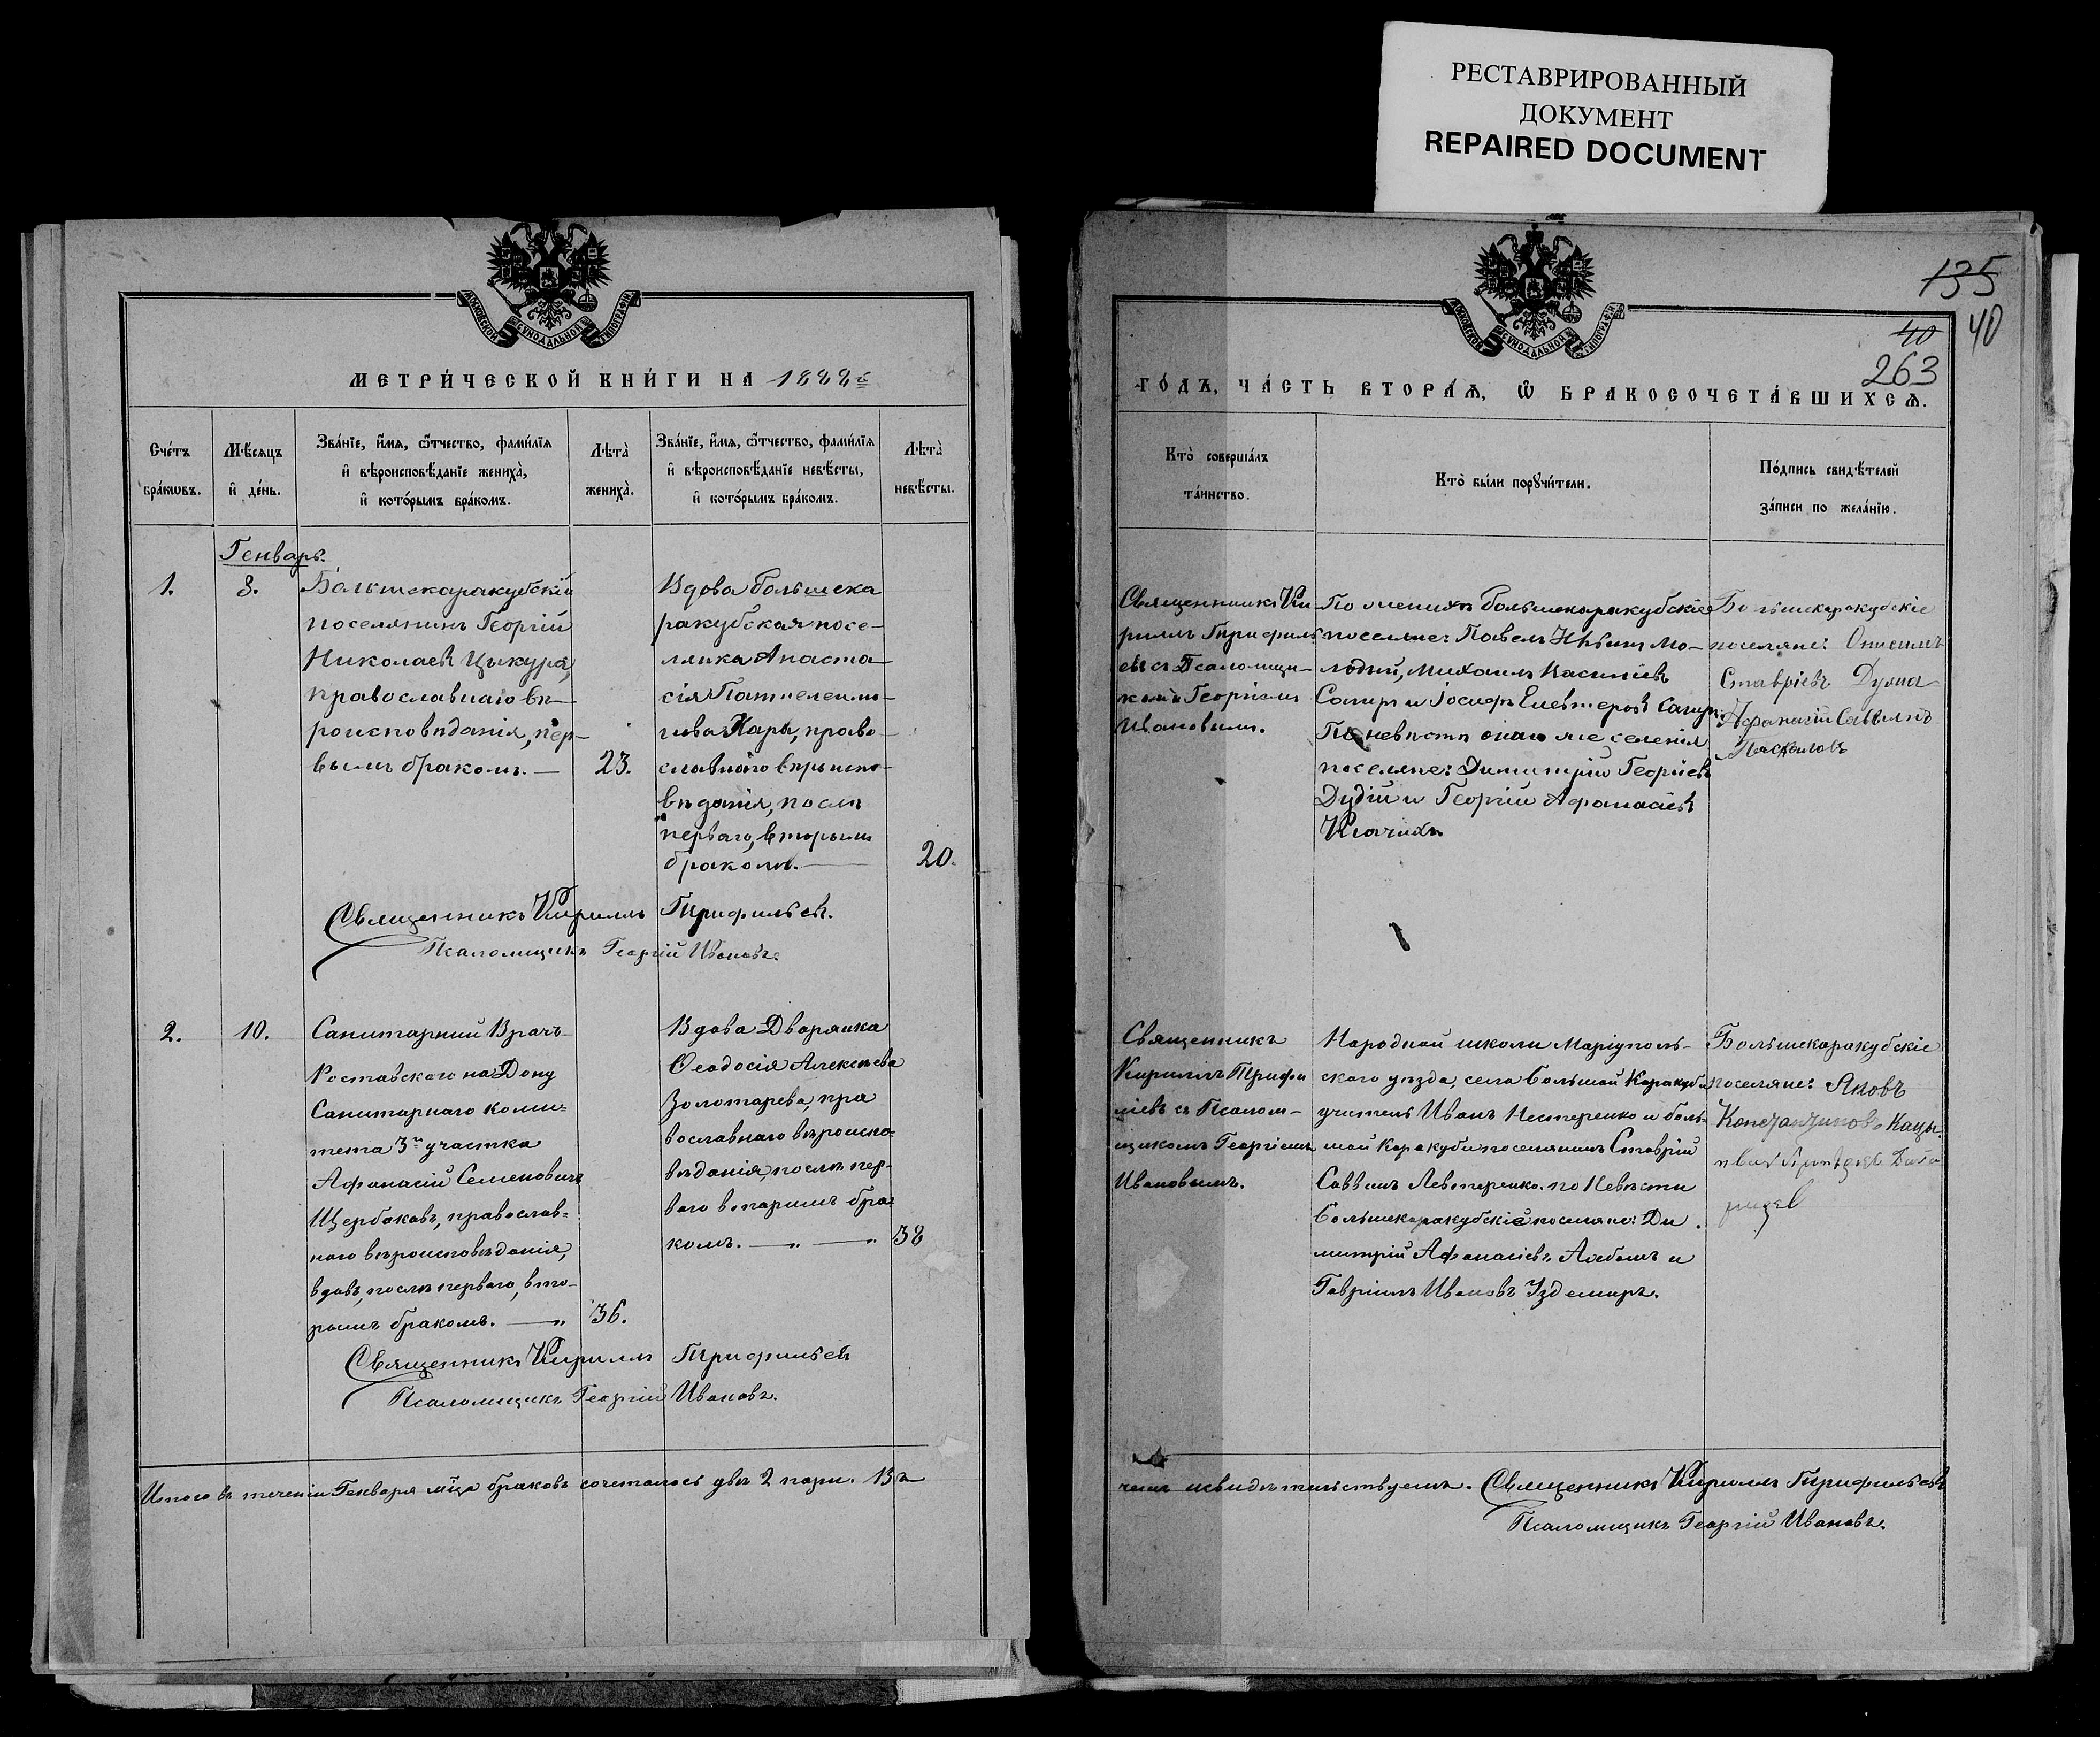 РЕСТАВРИРОВАННЫЙ
ДОКУМЕНТ
REPAIRED DOCUMENT
МОСКОВСКОЙ СѴНОДАЛЬНОЙ ТИПОГРАФІИ
МЕТРИ́ЧЕСКОЙ КНИ́ГИ НА 1888
Сче́тъ
бра́кωвъ.
Мѣ́сяцъ
и҆ де́нь.
Зва́нїе, и҆́мя, ѻ҆́тчество, фами́лїя
и҆ вѣроисповѣ́данїе жениха̀,
и҆ кото́рымъ бра́комъ.
Лѣта̀
жениха̀.
Зва́нїе, и҆́мя, ѻ҆́тчество, фами́лїя
и҆ вѣроисповѣ́данїе невѣ́сты,
и҆ кото́рымъ бра́комъ.
Лѣта̀
невѣ́сты.
Генварь.
1.
8.
Большекаракубскій
поселянинъ Георгій
Николаевъ Цыкура,
православнаго вѣ-
роисповѣданія, пер-
вымъ бракомъ. —
23.
Вдова больше ка
ракубская посе-
лянка Анаста-
сія Пантелеимо-
нова Хара, право-
славнаго вѣроиспо-
вѣданія, послѣ
перваго, вторымъ
бракомъ. —
20.
Священникъ Кириллъ Трифильев.
Псаломщикъ Георгій Ивановъ.
2.
10.
Санитарный Врачъ
Ростовскаго на Дону
Санитарнаго коми-
тета 3го участка
Афанасій Семеновичъ
Щербаковъ, православ-
наго вѣроисповѣданія,
вдовъ, послѣ перваго, вто-
рымъ бракомъ. — „
36.
Вдова Дворянка
Ѳеодосія Алексѣева
Золотарева, пра
вославнаго вѣроиспо-
вѣданія, послѣ пер-
ваго вторымъ бра-
комъ. — „ — „
38
Священникъ Кириллъ Трифильев
Псаломщикъ Георгій Ивановъ.
Итого въ теченіи Генваря мѣца браковъ сочеталось двѣ 2 пары. Въ
135
40
40
263
МОСКОВСКОЙ СѴНОДАЛЬНОЙ ТИПОГРАФІИ
ГО́ДЪ, ЧА́СТЬ ВТОРА́Ѧ, Ѡ҆ БРАКОСОЧЕТА́ВШИХСѦ.
Кто̀ соверша́лъ
та́инство.
Кто̀ бы́ли порꙋчи́тели.
По́дпись свидѣ́телей
за́писи по жела́нїю.
Священникъ Ки-
риллъ Трифиль
евъ съ Псаломщи-
комъ Георгіем
Ивановым.
По женихѣ большекаракубскіе
поселяне: Павелъ
Михаилъ
Сапиръ и Іосифъ Елевтеровъ
По невѣстѣ онаго же селенія
поселяне: Димитрій Георгіевъ
Дудій и Георгій Афанасіевъ
Большекаракубскіе
поселяне: Онисимъ
Ставріевъ
Афанасій
Священникъ
Кириллъ Трифи
ліевъ съ Псалом-
щикомъ Георгіемъ
Ивановымъ.
Народной школы Маріуполь-
скаго уѣзда, села Большой Каракубы
учитель Иванъ Нестеренко и боль-
шой Каракубы поселянинъ Ставрій
Саввинъ Левтеренко. по Невѣсты
большекаракубскіе поселяне: Ди
митрій Афанасіевъ и
Гавріилъ Ивановъ Уздемиръ.
Большекаракубскіе
поселяне: Яковъ
Константиновъ
чемъ и свидѣтельствуемъ. Священникъ Кириллъ Трифильевъ
Псаломщикъ Георгій Ивановъ.